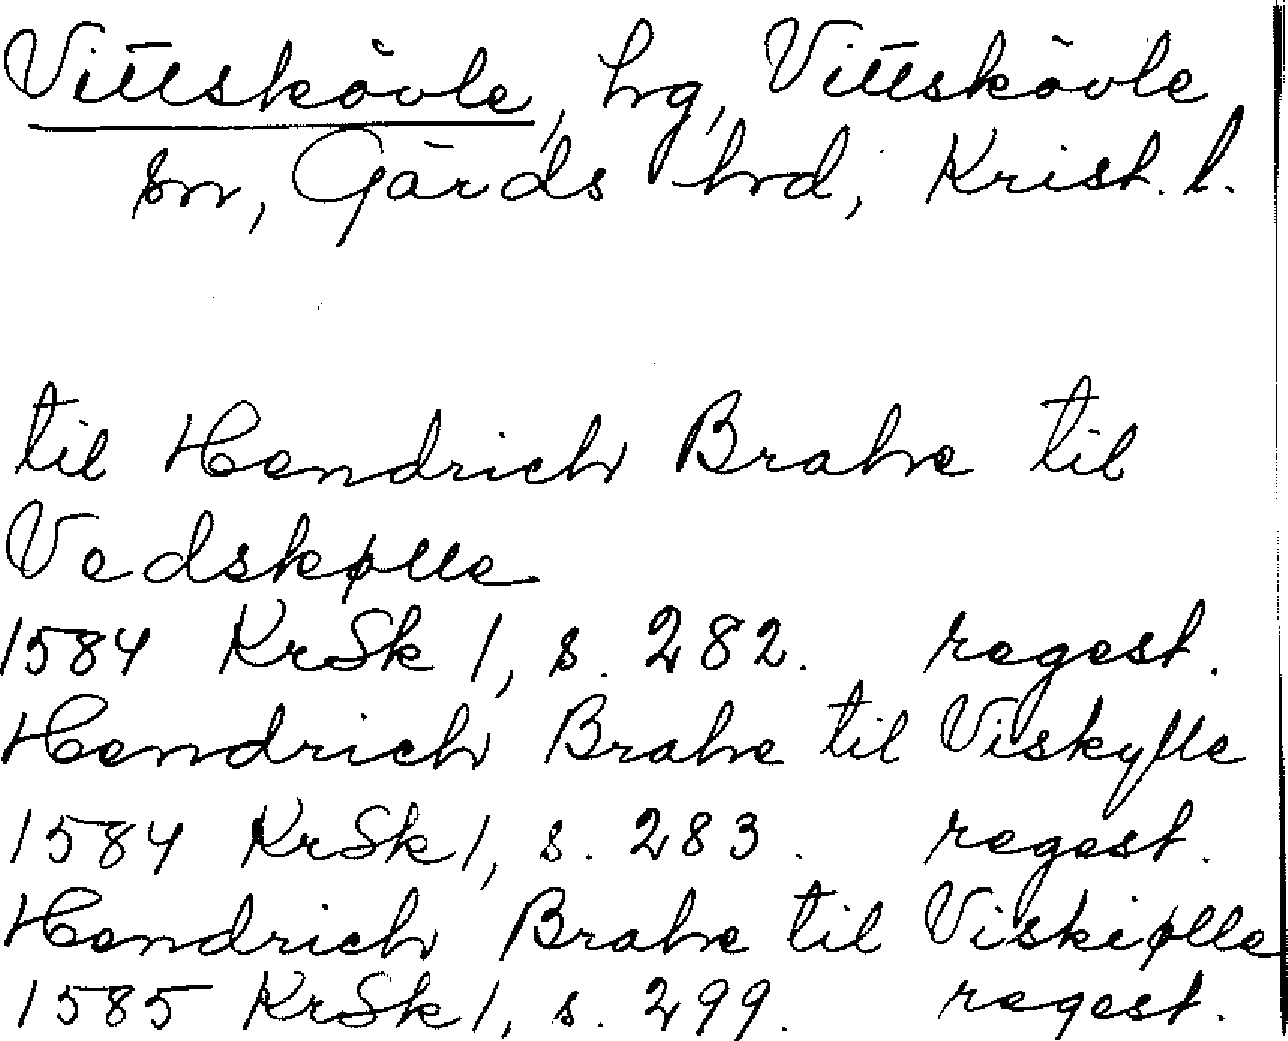 Vittskövle, hg, Vittskövle
sn, Gärds hrd, Krist. l.
til Hendrich Brahe til
Vedskølle
1584 KrSk 1, s. 282. regest.
Hendrich Brahe til Viskyffle
1584 KrSk 1, s. 283. regest.
Hendrich Brahe til Viskiølle
1585 KrSk 1, s. 299. regest.